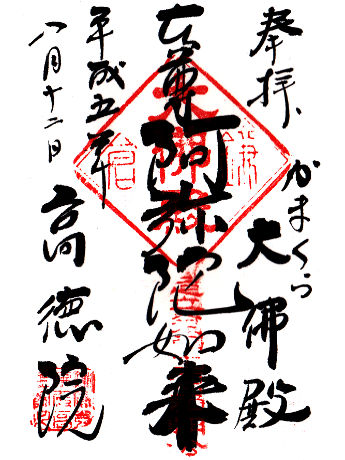 奉拝、
かまくら
大佛殿
本尊阿弥陀如来
平成五年
八月十二日
高徳院